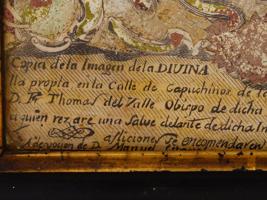 Copia de la Imagen de la DIVINA
lla propia en la Calle de Capuchinos de
D. Fr Thomas del Valle Obispo de dicha
aquien rezare una Salve delante de dicha In
afliciones Se encomendaren
de D. Manuel